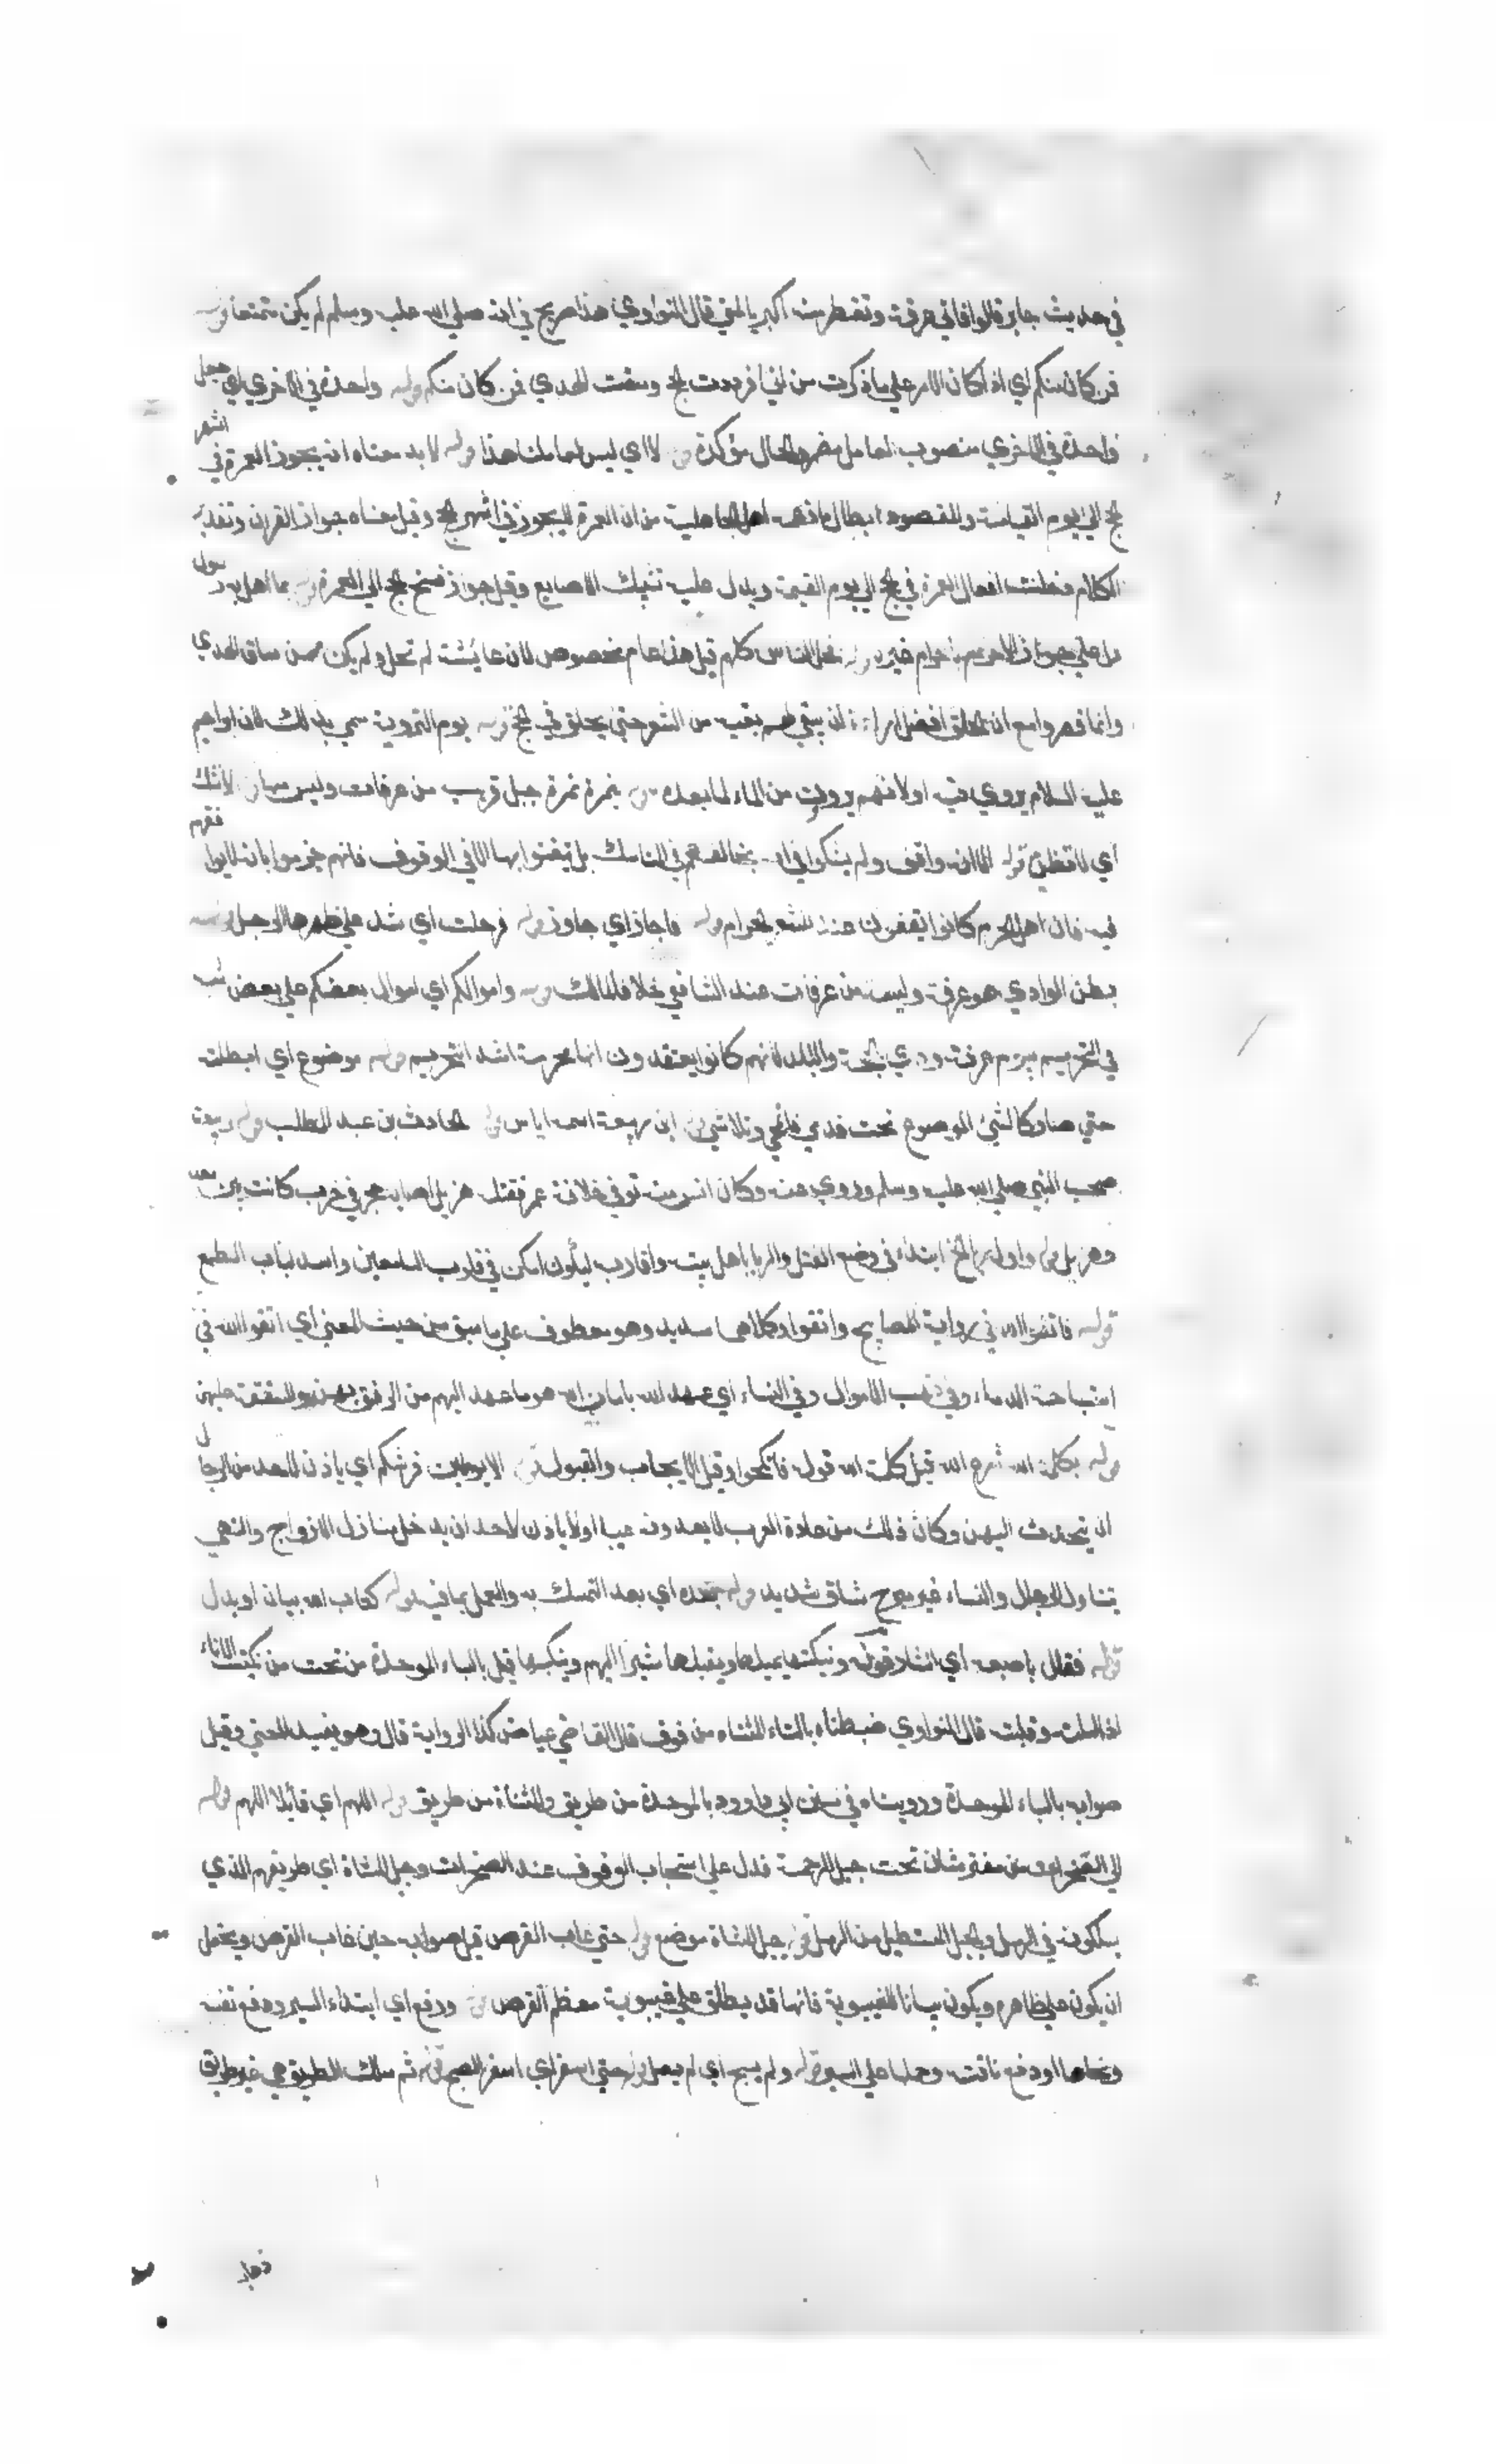 في حديث جابر قالوا فاتي عرفة وتقطر منه اكبر بالمني قال النواوي هذا صريح في انه صلي الله عليه وسلم لم يكن متمتعا قوله
فمن كان منكم اي اذا كان الامر علي ما ذكرت من اني افردت الحج وسقت الهدي فمن كان منكم قوله واحدة في الاخري اي جعل
واحدة في الاخري منصوب لعامل مضمر والحال مؤكدة لا اي ليس لعامك هذا قوله لا بد معناه انه يجوز العمرة في اشهر
الحج الي يوم القيامة والمقصود ابطال ما زعمه اهل الجاهلية من ان العمرة لا يجوز في اشهر الحج وقيل معناه جواز القران وتقدير
الكلام دخلت افعال العمرة في الحج الي يوم القيمة ويدل عليه تشبيك الاصابع وقيل جواز فسخ الحج الي العمرة قوله بما اهل به رسول
علي جواز الاحرام باحرام غيره قوله فحل الناس كلهم قيل هذا عام مخصوص لان عايشة لم تحل ولم يكن ممن ساق الهدي
وانما قصروا مع ان الحلق افضل ان يبقي لهم بقية من الشعر حتي يحلق في الحج قوله يوم التروية سمي بذلك لان ابراهيم
عليه السلام يروي فيه او لانهم يروون من الماء لما بعده قوله بنمرة نمرة جبل قريب من عرفات وليس منها قوله لا تشك
اي لا تظن قوله الا انه واقف ولم يشكوا في انه يخالفهم في المناسك بل تيقنوا بها الا في الوقوف فانهم جزموا بانه
فيه فان اهل الحرم كانوا يقفون عند المشعر الحرام قوله فاجاز اي جاوز قوله فرحلت اي شد علي ظهرها الرحل قوله
بطن الوادي هو عرنة وليست من عرفات عند الشافعي خلافا لمالك قوله واموالكم اي اموال بعضكم علي بعض شبه
في التحريم بيوم عرفة وذي الحجة والبلد لانهم كانوا يعتقدون انها محرمة اشد التحريم قوله موضوع اي ابطلت
حتي صار كالشيئ الموضوع تحت قدمي ابن ربيعة اسمه اياس الحارث بن عبد المطلب قوله ربيعة
صحب النبي صلي الله عليه وسلم وروي عنه وكان اسن منه توفي خلافة عمر فقتله هزيل اصابه حجر في حرب كانت بين سعد
وهزيل قوله واول ربا الخ ابتداء في وضع القتل والربا باهل بيته واقاربه ليكون امكن في قلوب السامعين واسد لباب الطمع
قوله فاتقوا الله في رواية المصابيح واتقوا وكلاهما سديد وهو معطوف علي ما سبق من حيث المعني اي اتقوا الله في
استباحة الدماء وفي نهب الاموال وفي النساء اي عهد الله بامان الله هو ما عهد اليهم من الرفق بهن والشفقة عليهن
قوله بكلمة الله شرع الله قيل كلمة الله قوله فانكحوا وقيل الايجاب والقبول قوله الا يوطين فرشكم اي ياذن لاحد من الرجال
ان يتحدث اليهن وكان ذلك من عادة العرب لا يعدونه عيبا او لا ياذن لاحد ان يدخل منازل الازواج والنهي
يتناول الرجال والنساء غير مبرح شاق شديد قوله بعده اي بعد التمسك به والعمل بما فيه قوله كتاب الله بيان او بدل
قوله فقال باصبعه اي اشار قوله وينكتها يميلها ويقبلها مشيرا اليهم وينكبها قيل بالباء الموحدة من تحت من نكبت الاناء
اذا املته وقلبته قال النواوي ضبطناه بالتاء المثناه من فوق قال القاضي عياض كذا الرواية قال وهو يفيد المعني وقيل
صوابه بالباء الموحدة ورويناه في سنن ابي داوود بالموحدة من طريق والمثناة من طريق قوله اللهم اي قائلا اللهم قوله
الي الصخرات تحت جبل الرحمة فدل علي استحباب الوقوف عند الصخرات وحبل المشاة اي طريقهم الذي
يسلكونه في الرمل والحبل المستطيل من الرمل قوله حبل المشاة موضع قوله حتي غاب القرص قيل صوابه حين غاب القرص ويحتمل
ان يكون علي ظاهره ويكون بيانا للغيبوبة فانها قد يطلق علي غيبوبة معظم القرص قوله ودفع اي ابتداء السير ودفع نفسه
ونحاها او دفع ناقته وحملها علي السير قوله ولم يسبح اي لم يصل قوله حتي اسفر اي اسفر الصبح قوله ثم سلك الطريق هي غير طريق